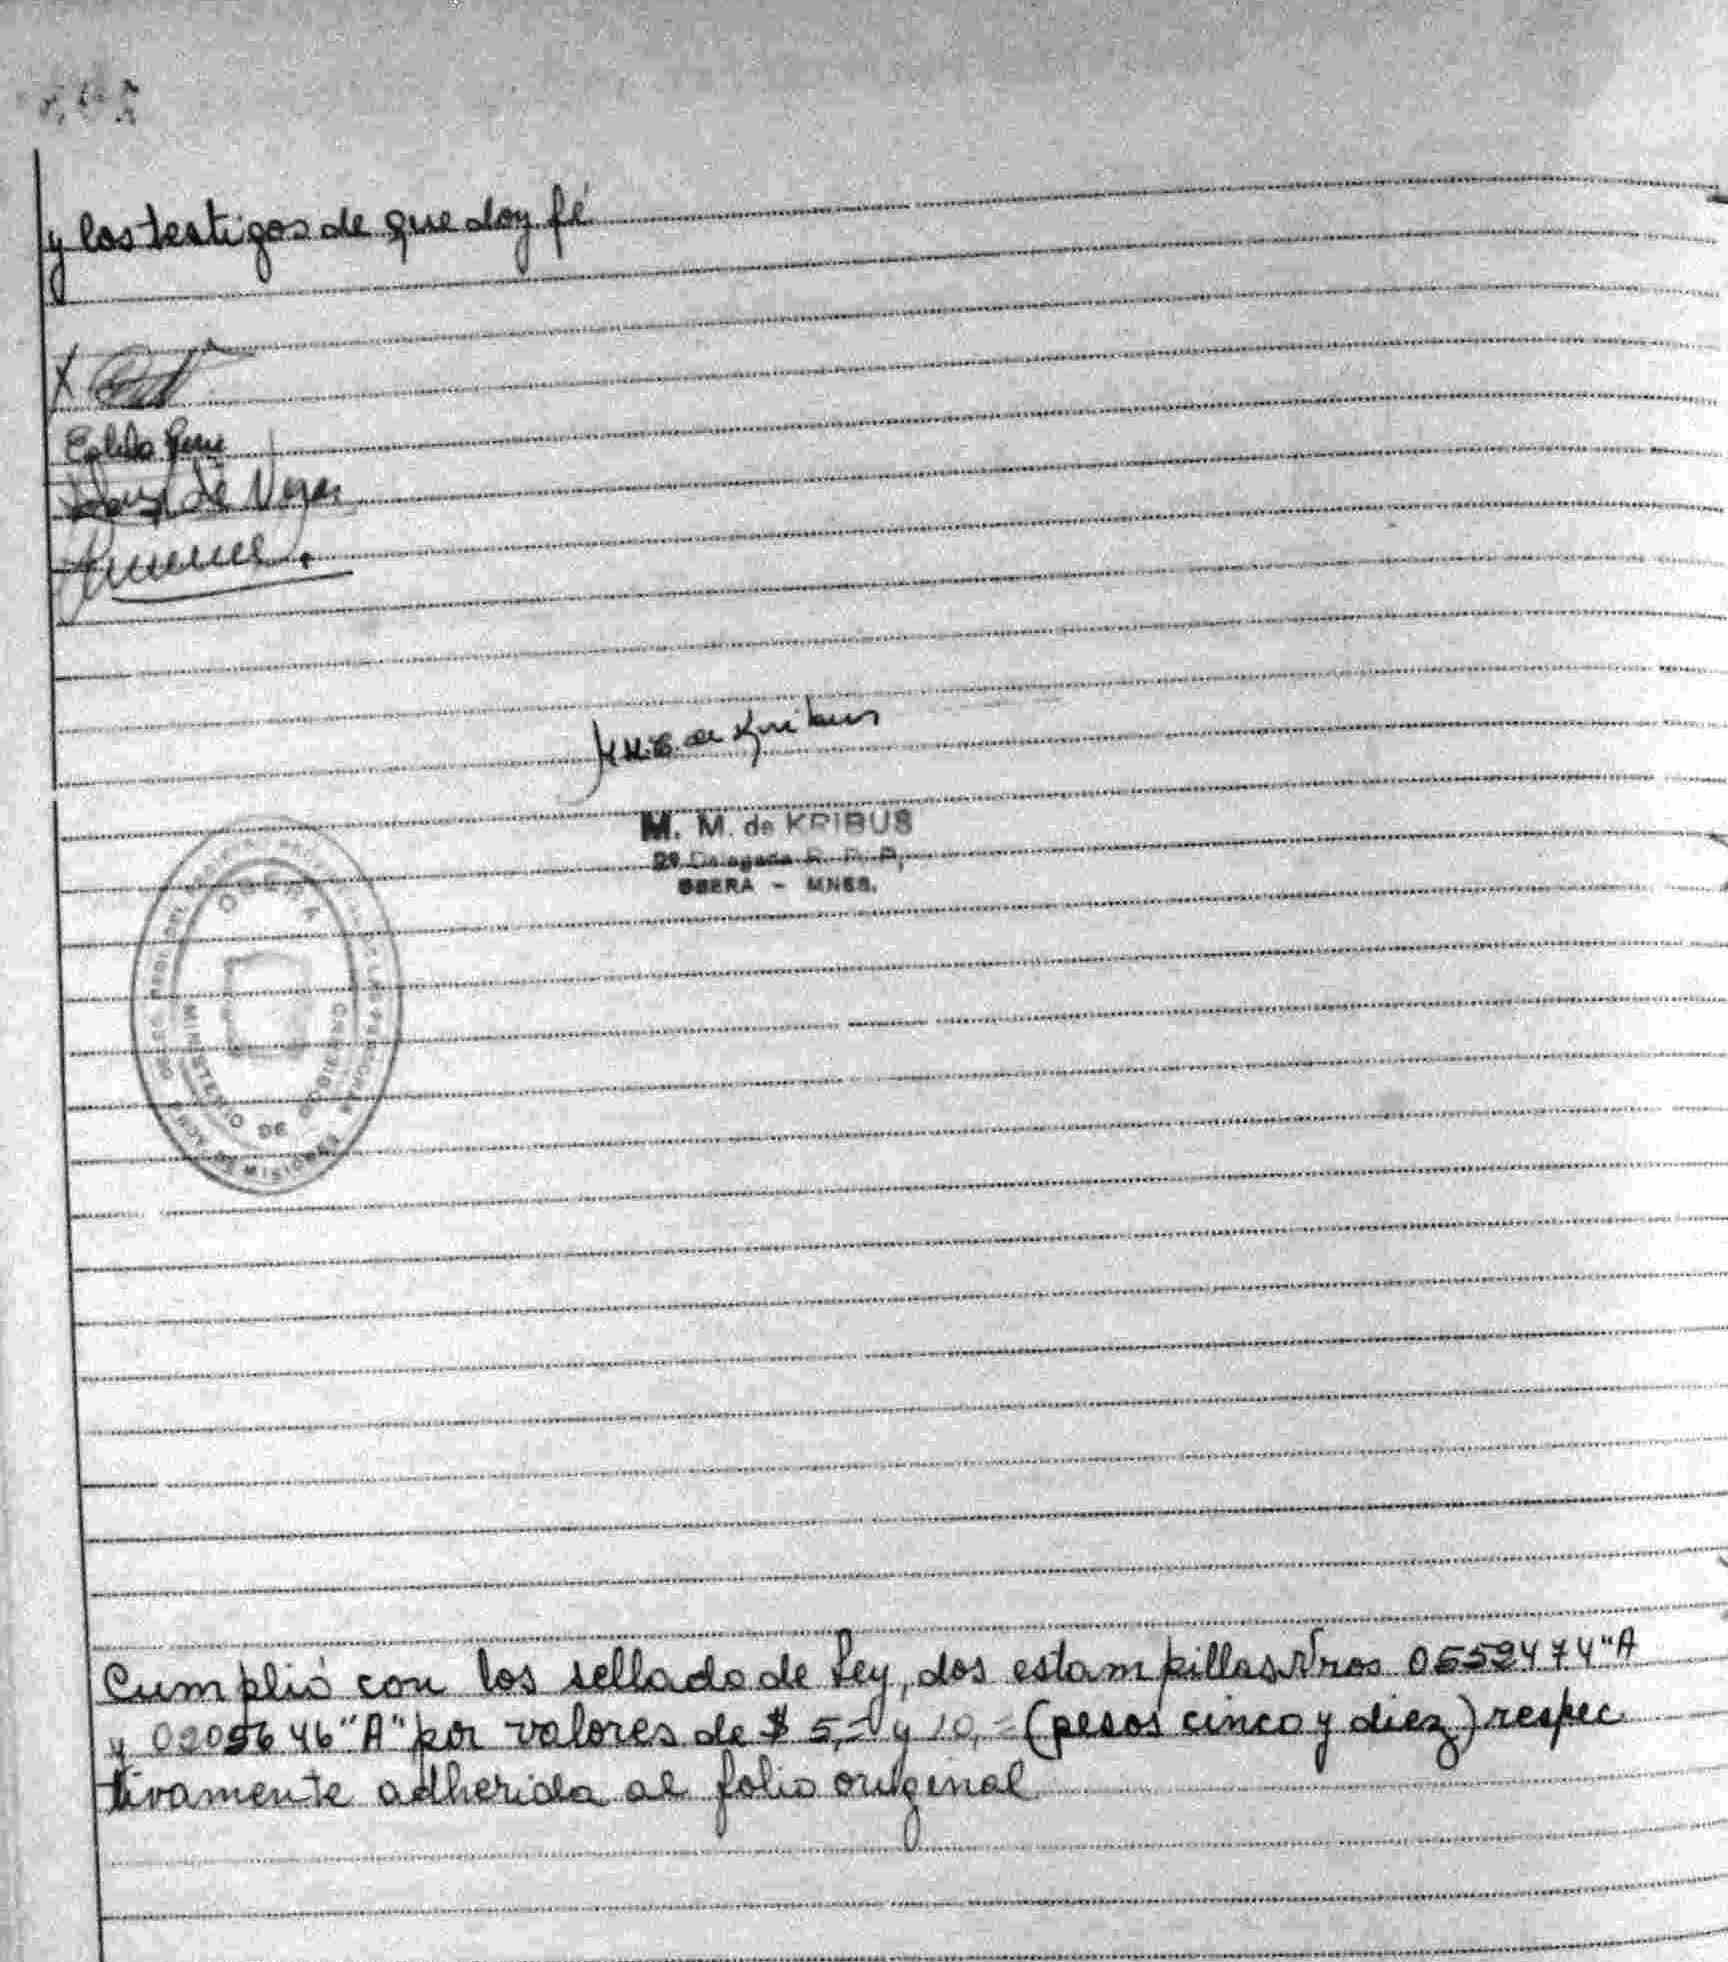 y los testigos de que doy fé
X
de
M. M. de Kribus
M. M. de KRIBUS
2ª Delegada R. P. P,
OBERA - MNES.
OBERA
MINISTERIO DE GOBIERNO
DE MISIONES
Cumplió con los sellado de Ley, dos estampillas Nros 0552474"A
y 0205646"A" por valores de $ 5,= y 10,= (pesos cinco y diez) respec
tivamente adherida al folio original